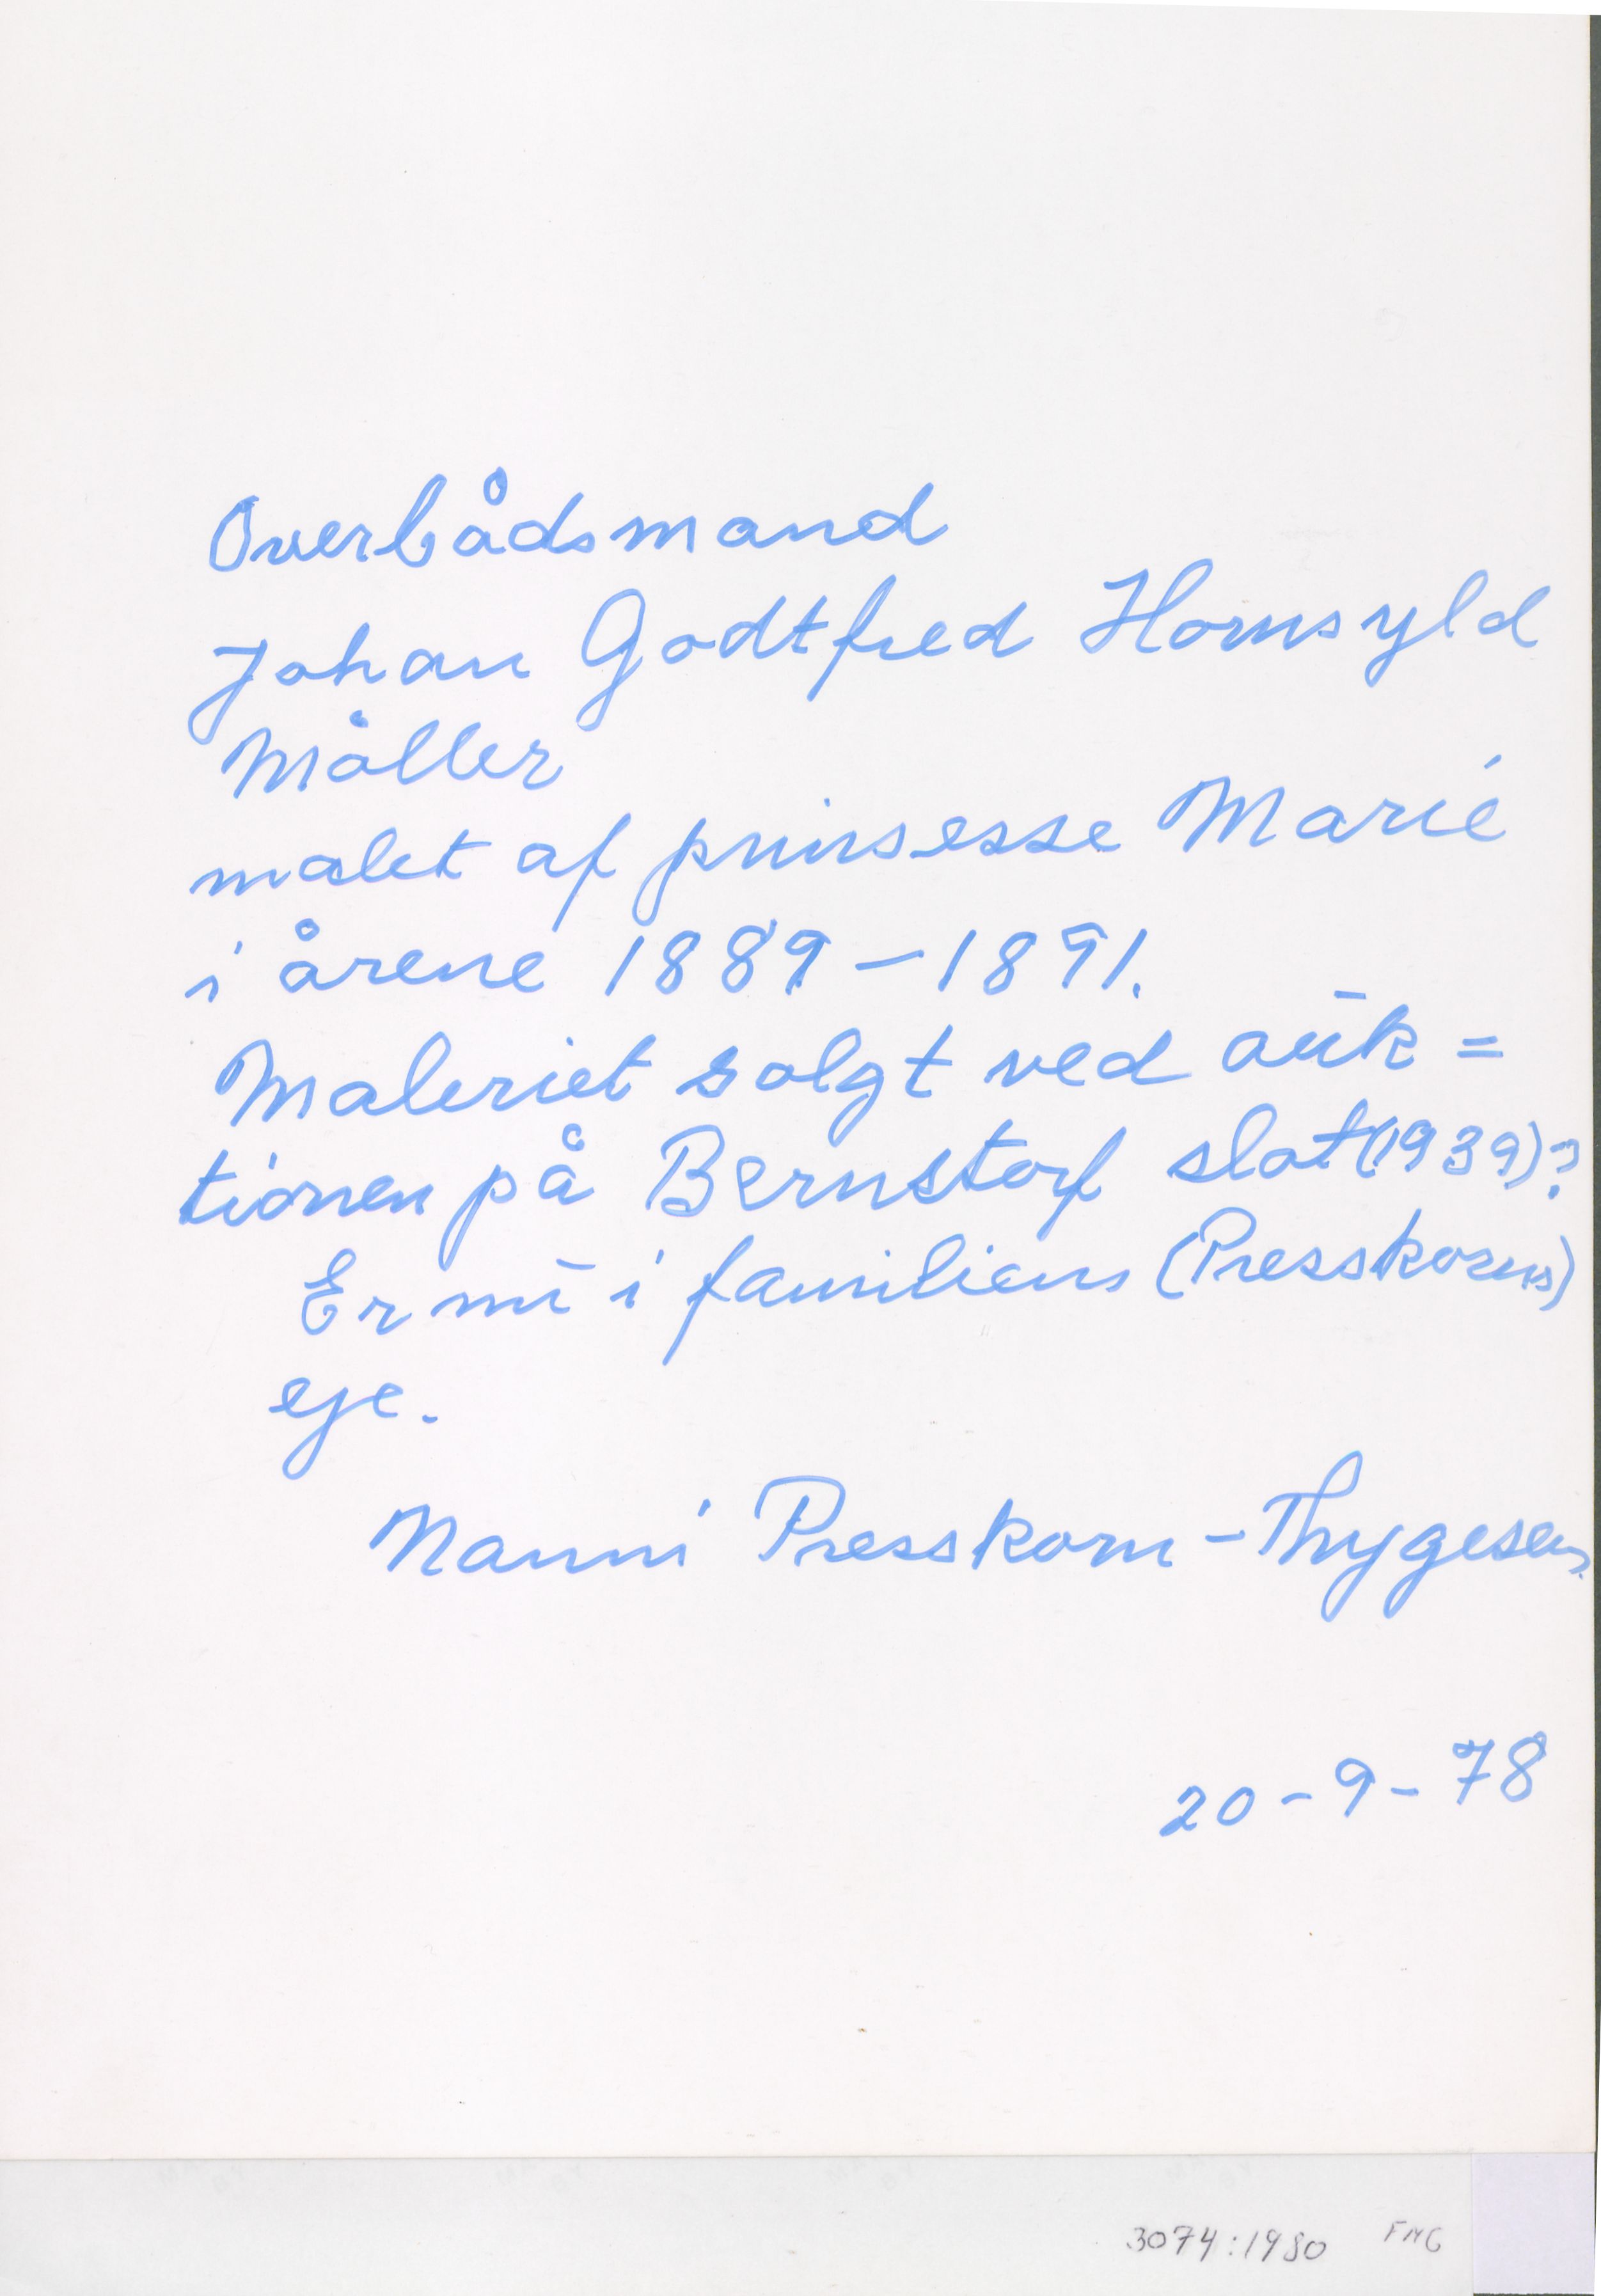 Overbådsmand
Johan Godtfred Hornsyld
Möller
malet af prinsesse Marie
i årene 1889-1891.
Maleriet solgt ved auk=
tionen på Bernstorf slot (1939)?
Er nu i familiens (Presskorns)
eje.
Nanni Presskorn-Thygesen.
20-9-78
3074:1980 FMG